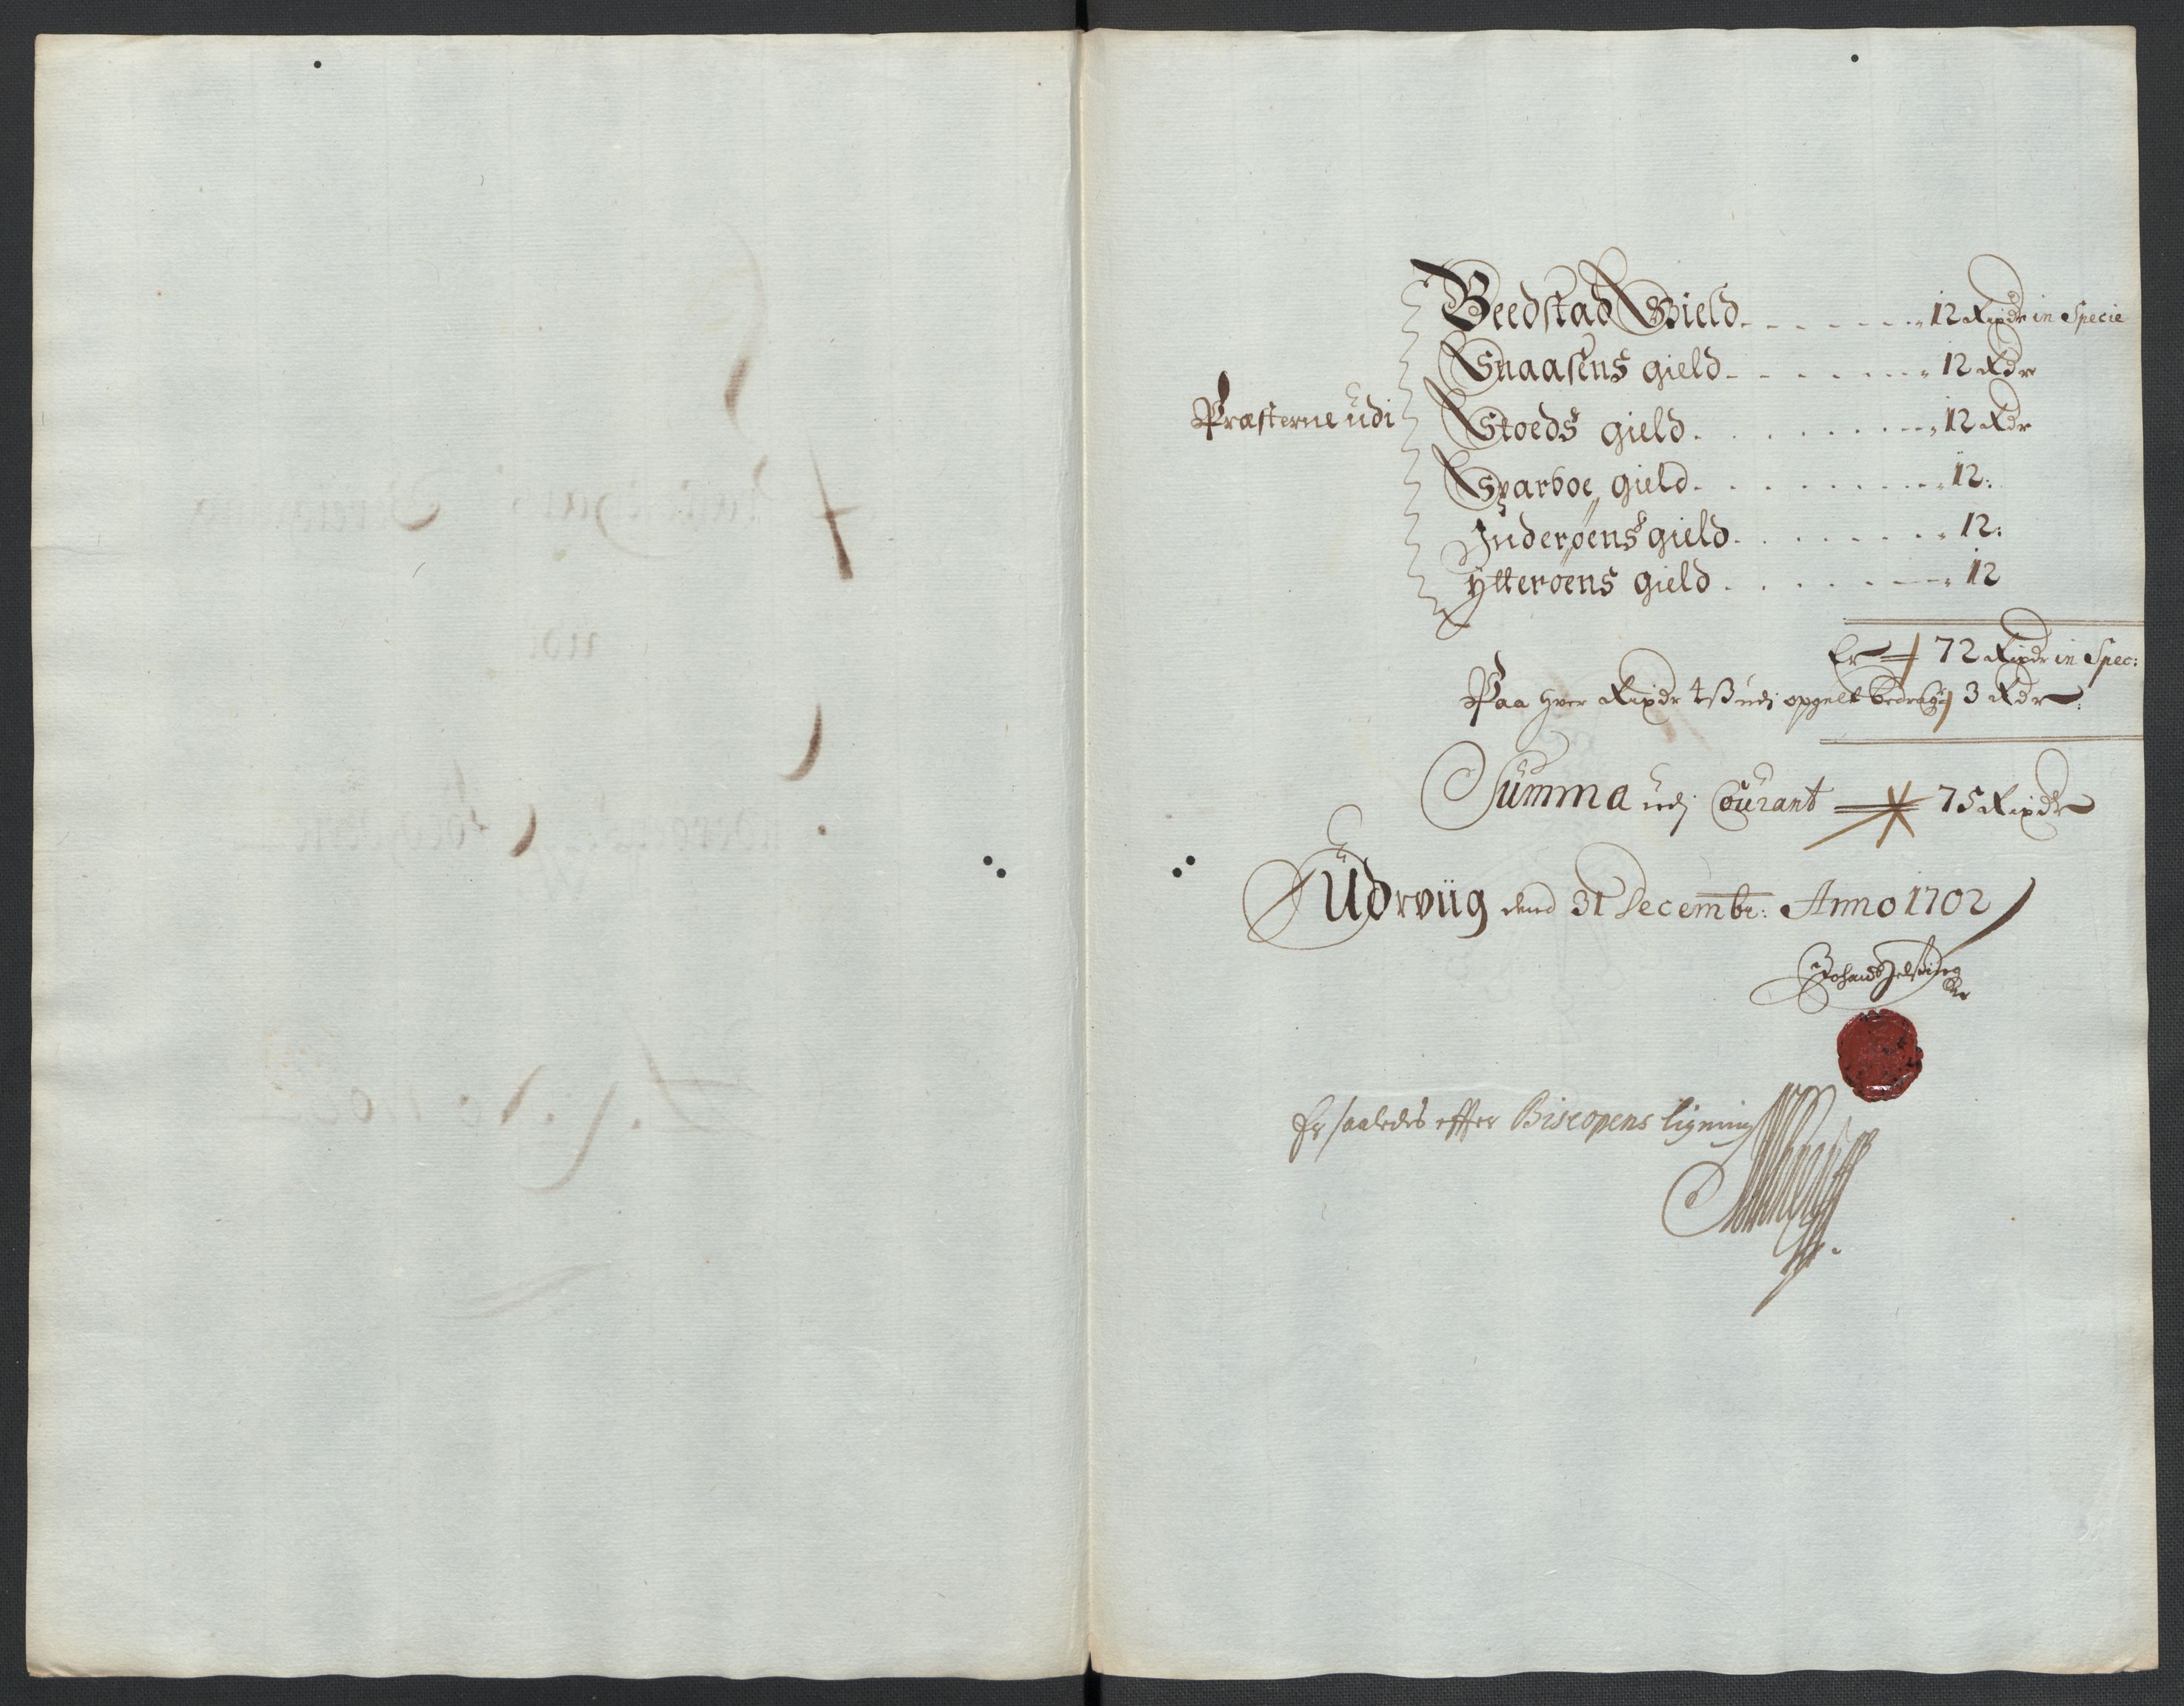 Beedstad Gield - - - - - - - 12 Rixdr in Specie
Snaasens gield - - - - - - - 12 Rdr
Præsterne udi
Stoeds gield . . . . . . . . 12 Rdr
Sparboe gield . . . . . . . . 12:
Inderøens gield . . . . . . . 12:
Ytterøens gield . . . . . . . 12
Er 72 Rixdr in Spec:
Paa hver Rixdr 4 ß udj opgelt bedrager 3 Rdr
Summa udj Courant 75 Rixdr
Udrviig dend 31 Decembr: Anno 1702
Er saaledes effter Biscopens ligning